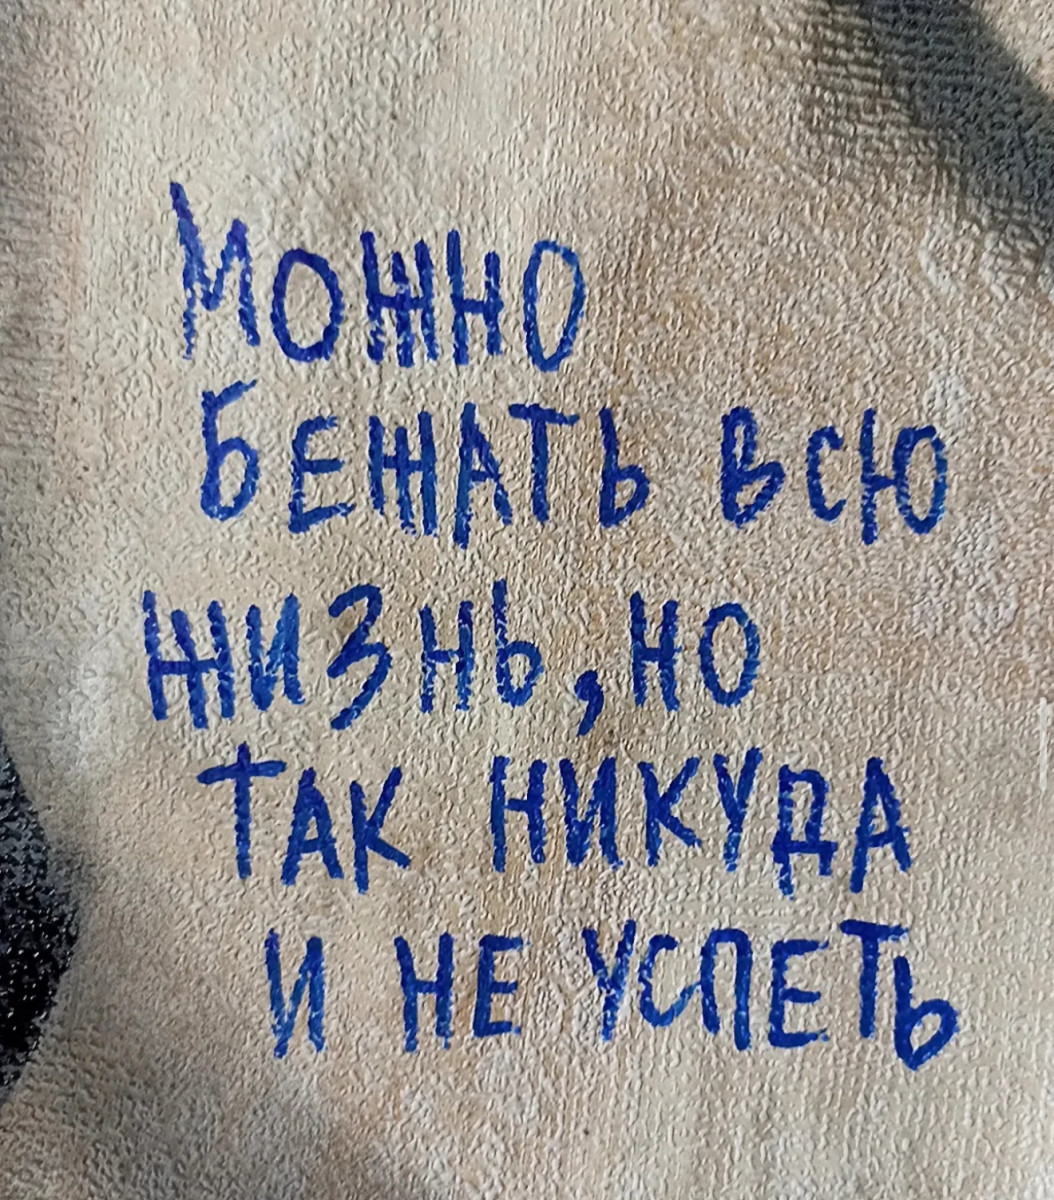 Можно
бежать всю
жизнь, но
так никуда
и не успеть